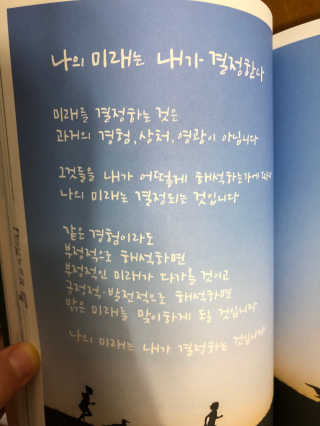 나의 미래는 내가 결정한다
미래를 결정하는 것은
과거의 경험, 상처, 영광이 아닙니다
그것들을 내가 어떻게 해석하는가에
나의 미래는 결정되는 것입니다
같은 경험이라도
부정적으로 해석하면
부정적인 미래가 다가올 것이고
긍정적·발전적으로 해석하면
밝은 미래를 맞이하게 될 것입니다
나의 미래는 내가 결정하는 것입니다